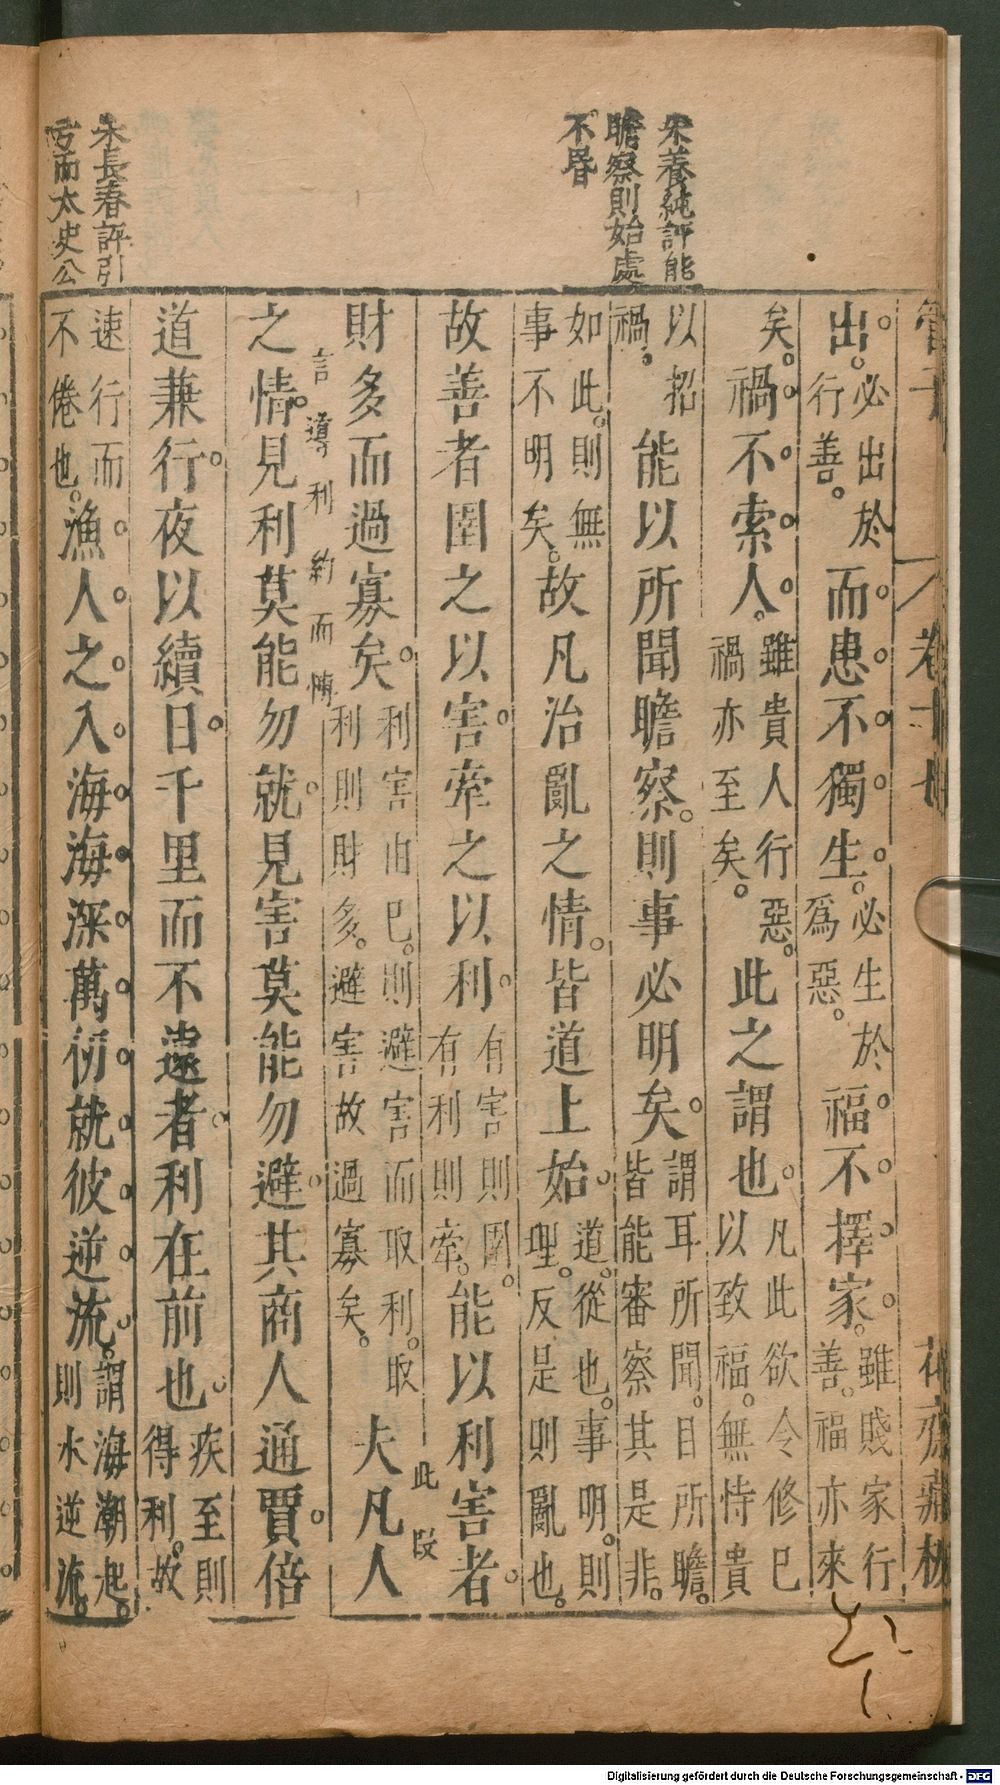 管子 卷十七 花齋藏板
朱養純評能
瞻察則始處
不昏
出。必出於行善。而患不獨生。必生於爲惡。福不擇家。雖賤家行善。福亦來
矣。禍不索人。雖貴人行惡。禍亦至矣。此之謂也。凡此欲令修己以致福。無恃貴
以招禍。能以所聞瞻察。則事必明矣。謂耳所聞。目所瞻。皆能審察其是非。
如此。則無事不明矣。故凡治亂之情。皆道上始。道。從也。事明。則理。反是則亂也。
故善者圉之以害。牽之以利。有害則圉。有利則牽。能以利害者。
此段
財多而過寡矣。利害由已。則避害而取利。取利則財多。避害故過寡矣。夫凡人
言導利約而
之情。見利莫能勿就。見害莫能勿避。其商人通賈。倍
道兼行。夜以續日。千里而不遠者。利在前也。疾至則得利。故
朱長春評引
而太史公
速行而不倦也。漁人之入海。海深萬仞。就彼逆流。謂海潮起。則水逆流。
Digitalisierung gefördert durch die Deutsche Forschungsgemeinschaft - DFG